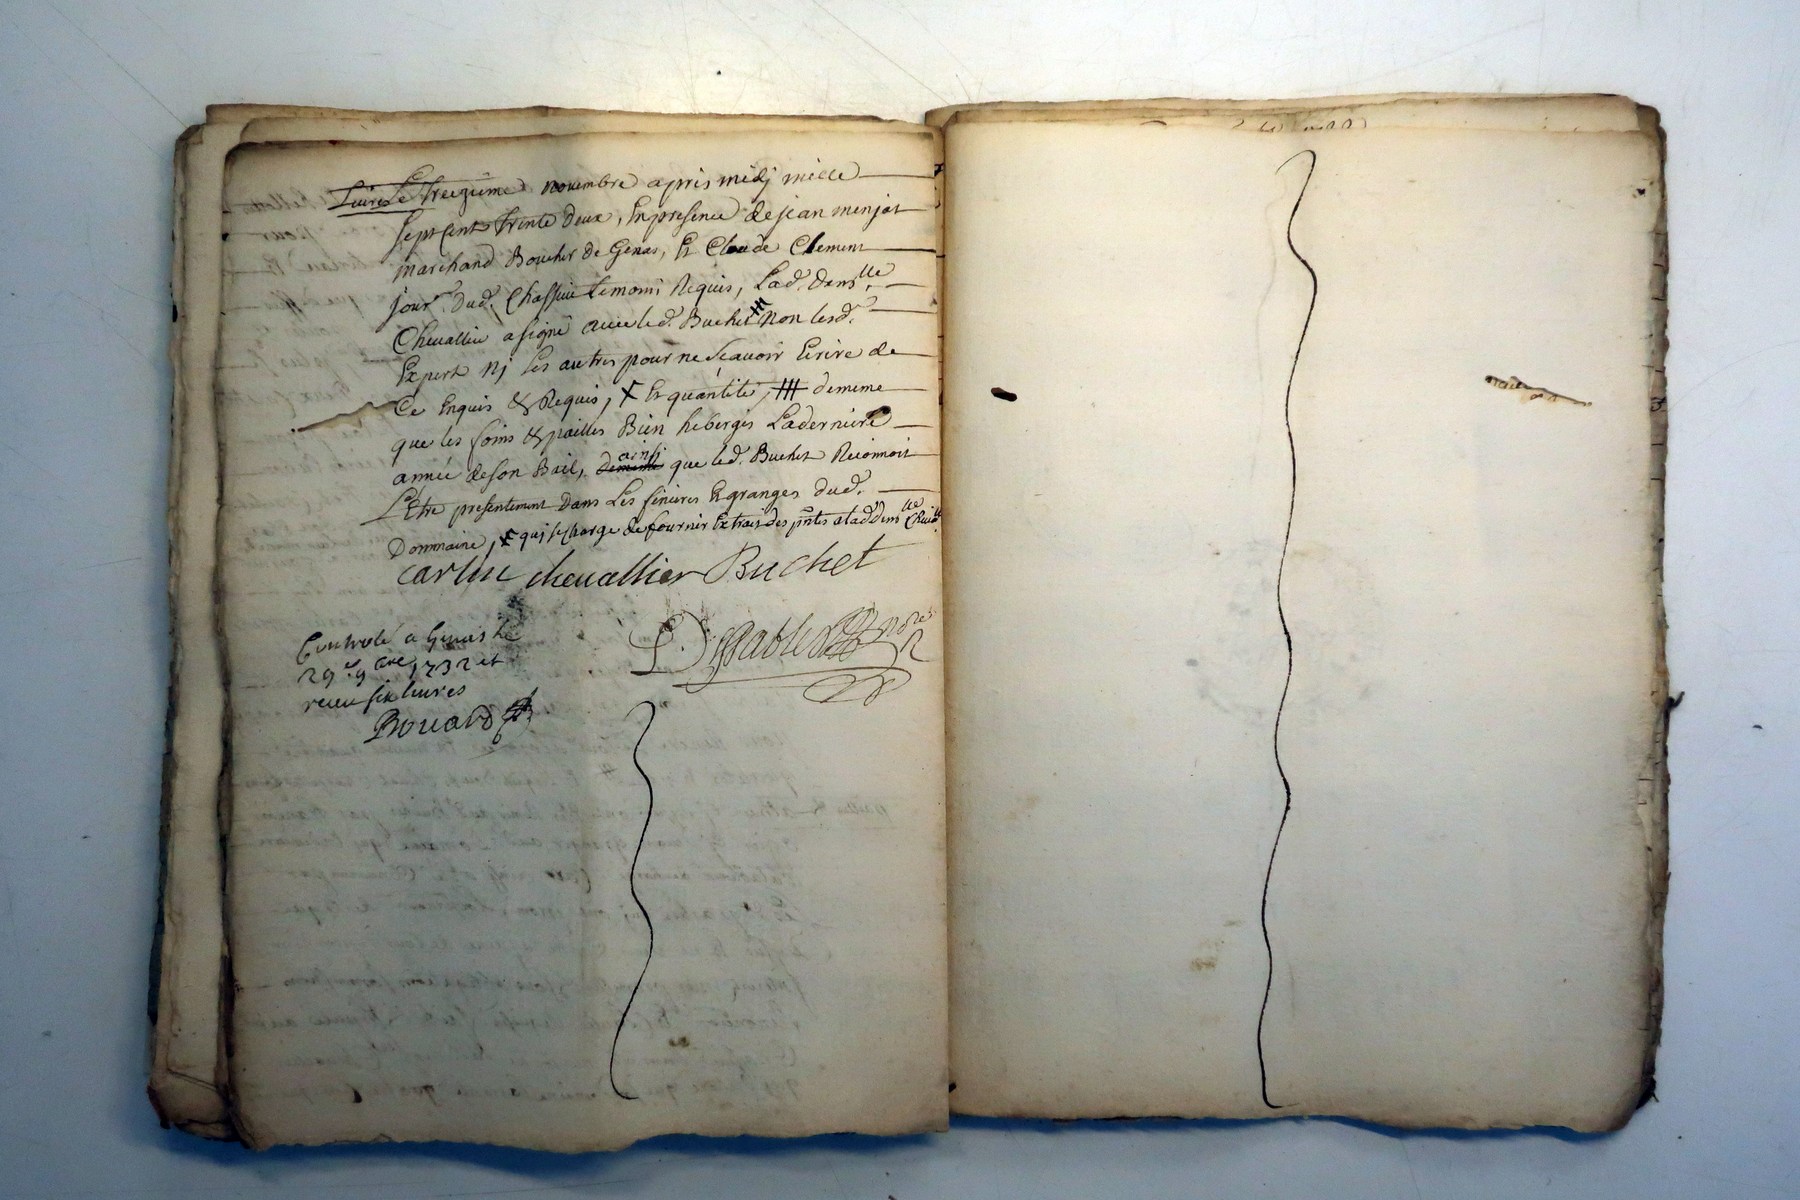 Livres Le treizieme novembre apres midj mille
sept Cents trente deux, En presence de jean menjot
marchand Boucher de Genas, Et Claude Clement
jour.r Dud. Chassieu temoins Requis, Lad. Dam.lle
Chevallier a signé avec led. Buchet ⧻ non lesd.
Expert nj Les autres pour ne Scavoir Ecrire de
Ce Enquis & Requis, X Et quantité, ⧻ de meme
que les foins & pailles Bien hebergés La derniere
année de son Bail, de meme ainsi que led. Buchet Reconnoit
L'Etre presentement Dans Les finieres Et granges dud.
Dommaine, X quj se charge de fournir Extrait des pntes a lad. Dem.lle Cheva.
carlin chevallier Buchet
Controlé a Genas le
29.e 9bre 1732 et
receu six livres
Bouard